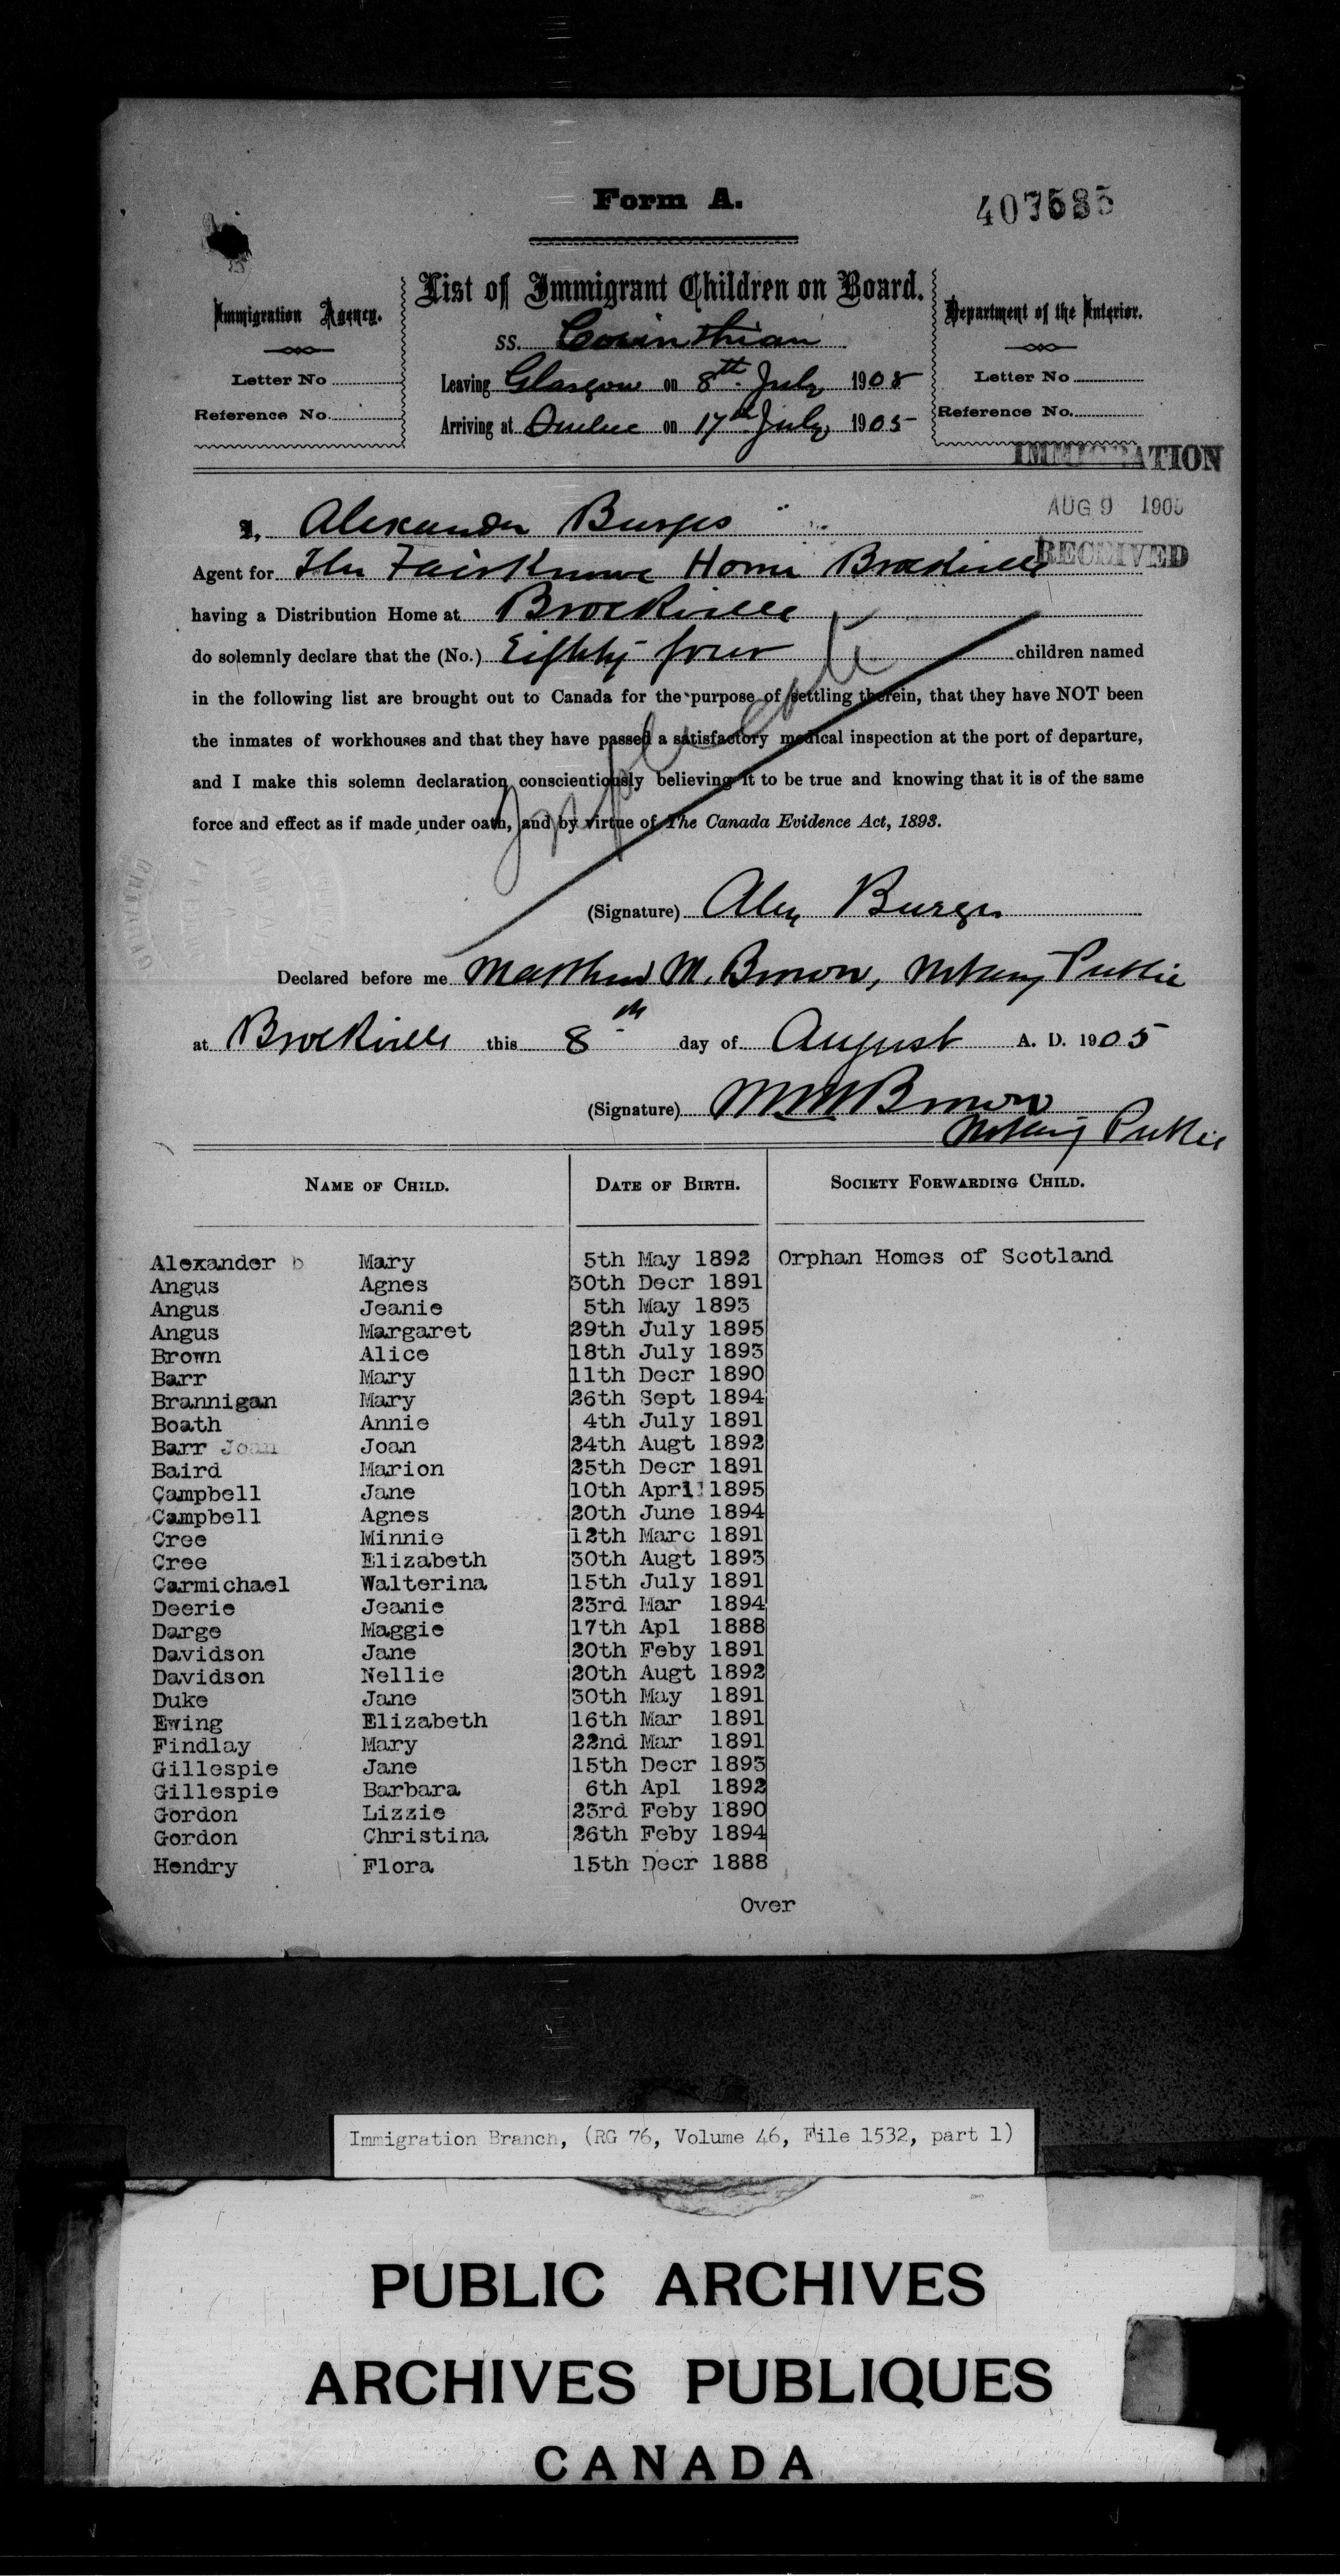 Form A.
407585
List of Immigrant Children on Board.
Immigration Agency.
Department of the Interior.
SS. Corinthian
Letter No
Letter No
Leaving Glasgow on 8th July 1905
Reference No.
Reference No.
Arriving at Quebec on 17th July 1905
IMMIGRATION
AUG 9 1905
RECEIVED
I, Alexander Burges
Agent for The Fairknowe Home Brockville
having a Distribution Home at Brockville
do solemnly declare that the (No.) Eighty four children named
in the following list are brought out to Canada for the purpose of settling therein, that they have NOT been
the inmates of workhouses and that they have passed a satisfactory medical inspection at the port of departure,
and I make this solemn declaration conscientiously believing it to be true and knowing that it is of the same
force and effect as if made under oath, and by virtue of The Canada Evidence Act, 1893.
(Signature) Alex Burges
Declared before me Matthew M. Brown, Notary Public
at Brockville this 8th day of August A. D. 1905
(Signature) M M Brown
Notary Public
NAME OF CHILD. DATE OF BIRTH. SOCIETY FORWARDING CHILD.
Alexander Mary 5th May 1892 Orphan Homes of Scotland
Angus Agnes 30th Decr 1891
Angus Jeanie 5th May 1893
Angus Margaret 29th July 1895
Brown Alice 18th July 1893
Barr Mary 11th Decr 1890
Brannigan Mary 26th Sept 1894
Boath Annie 4th July 1891
Barr Joan Joan 24th Augt 1892
Baird Marion 25th Decr 1891
Campbell Jane 10th April 1895
Campbell Agnes 20th June 1894
Cree Minnie 12th Marc 1891
Cree Elizabeth 30th Augt 1893
Carmichael Walterina 15th July 1891
Deerie Jeanie 23rd Mar 1894
Darge Maggie 17th Apl 1888
Davidson Jane 20th Feby 1891
Davidson Nellie 20th Augt 1892
Duke Jane 30th May 1891
Ewing Elizabeth 16th Mar 1891
Findlay Mary 22nd Mar 1891
Gillespie Jane 15th Decr 1893
Gillespie Barbara 6th Apl 1892
Gordon Lizzie 23rd Feby 1890
Gordon Christina 26th Feby 1894
Hendry Flora 15th Decr 1888
Over
Immigration Branch, (RG 76, Volume 46, File 1532, part 1)
PUBLIC ARCHIVES
ARCHIVES PUBLIQUES
CANADA